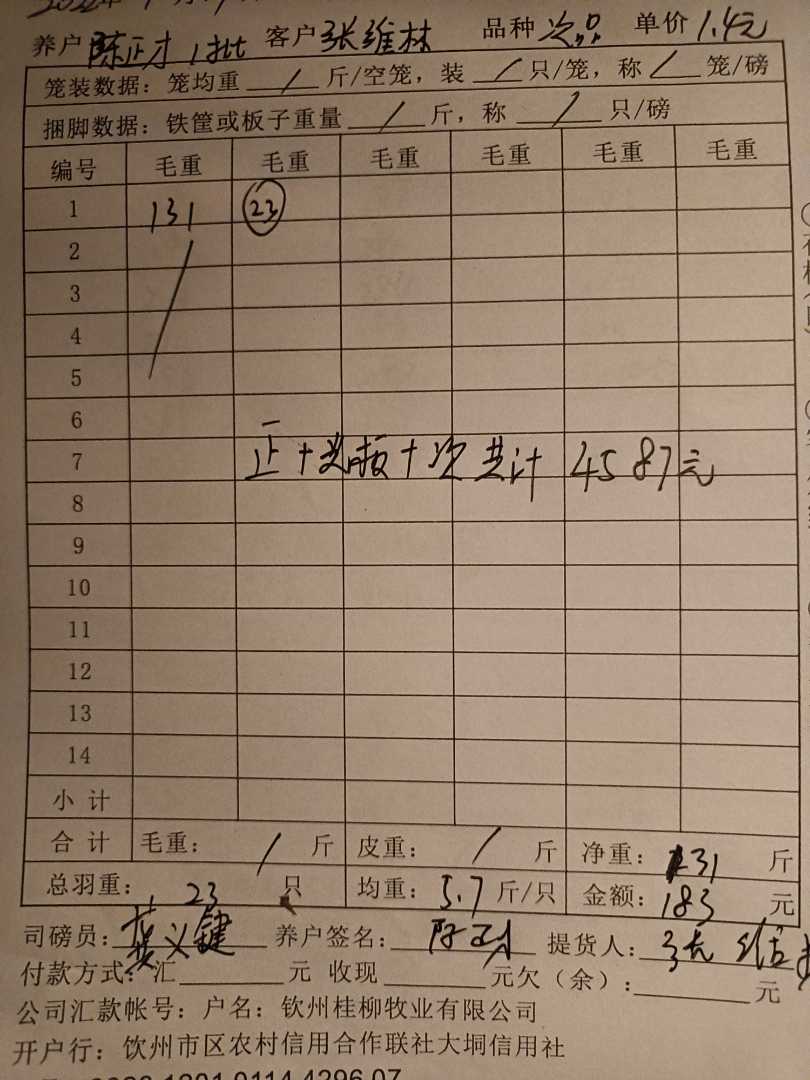 养户 陈正才 1批 客户 张维林 品种 次品 单价 1.4元
笼装数据：笼均重 / 斤/空笼，装 / 只/笼，称 / 笼/磅
捆脚数据：铁筐或板子重量 / 斤，称 / 只/磅
编号 毛重 毛重 毛重 毛重 毛重 毛重
1 131 23
2
3
4
5
6
7 正+道板+次 共计 4587元
8
9
10
11
12
13
14
小计
合计 毛重： / 斤 皮重： / 斤 净重：131 斤
总羽重：23 只 均重：5.7 斤/只 金额：183 元
司磅员：义键 养户签名：陈正才 提货人：张维林
付款方式：汇 元 收现 元欠（余）： 元
公司汇款帐号：户名：钦州桂柳牧业有限公司
开户行：饮州市区农村信用合作联社大垌信用社